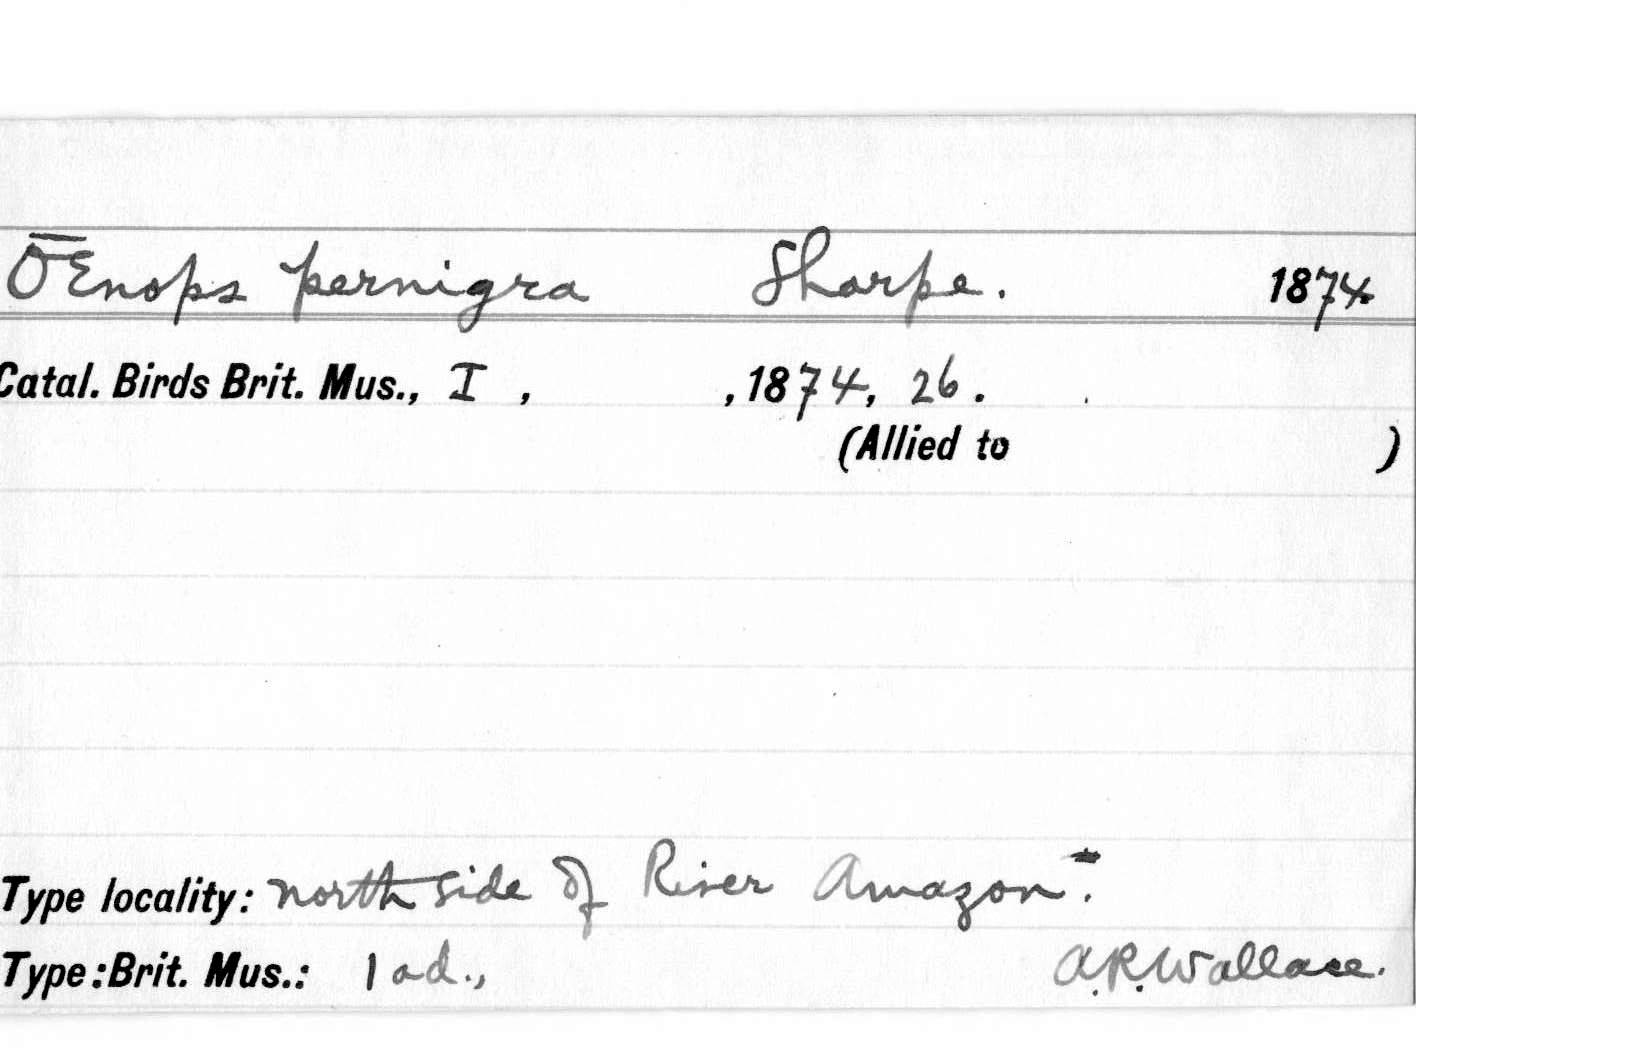 Œnops pernigra Sharpe. 1874
Catal. Birds Brit. Mus., I , , 1874, 26.
(Allied to )
Type locality: north side of River Amazon.
Type: Brit. Mus.: 1 ad., A.R.Wallace.